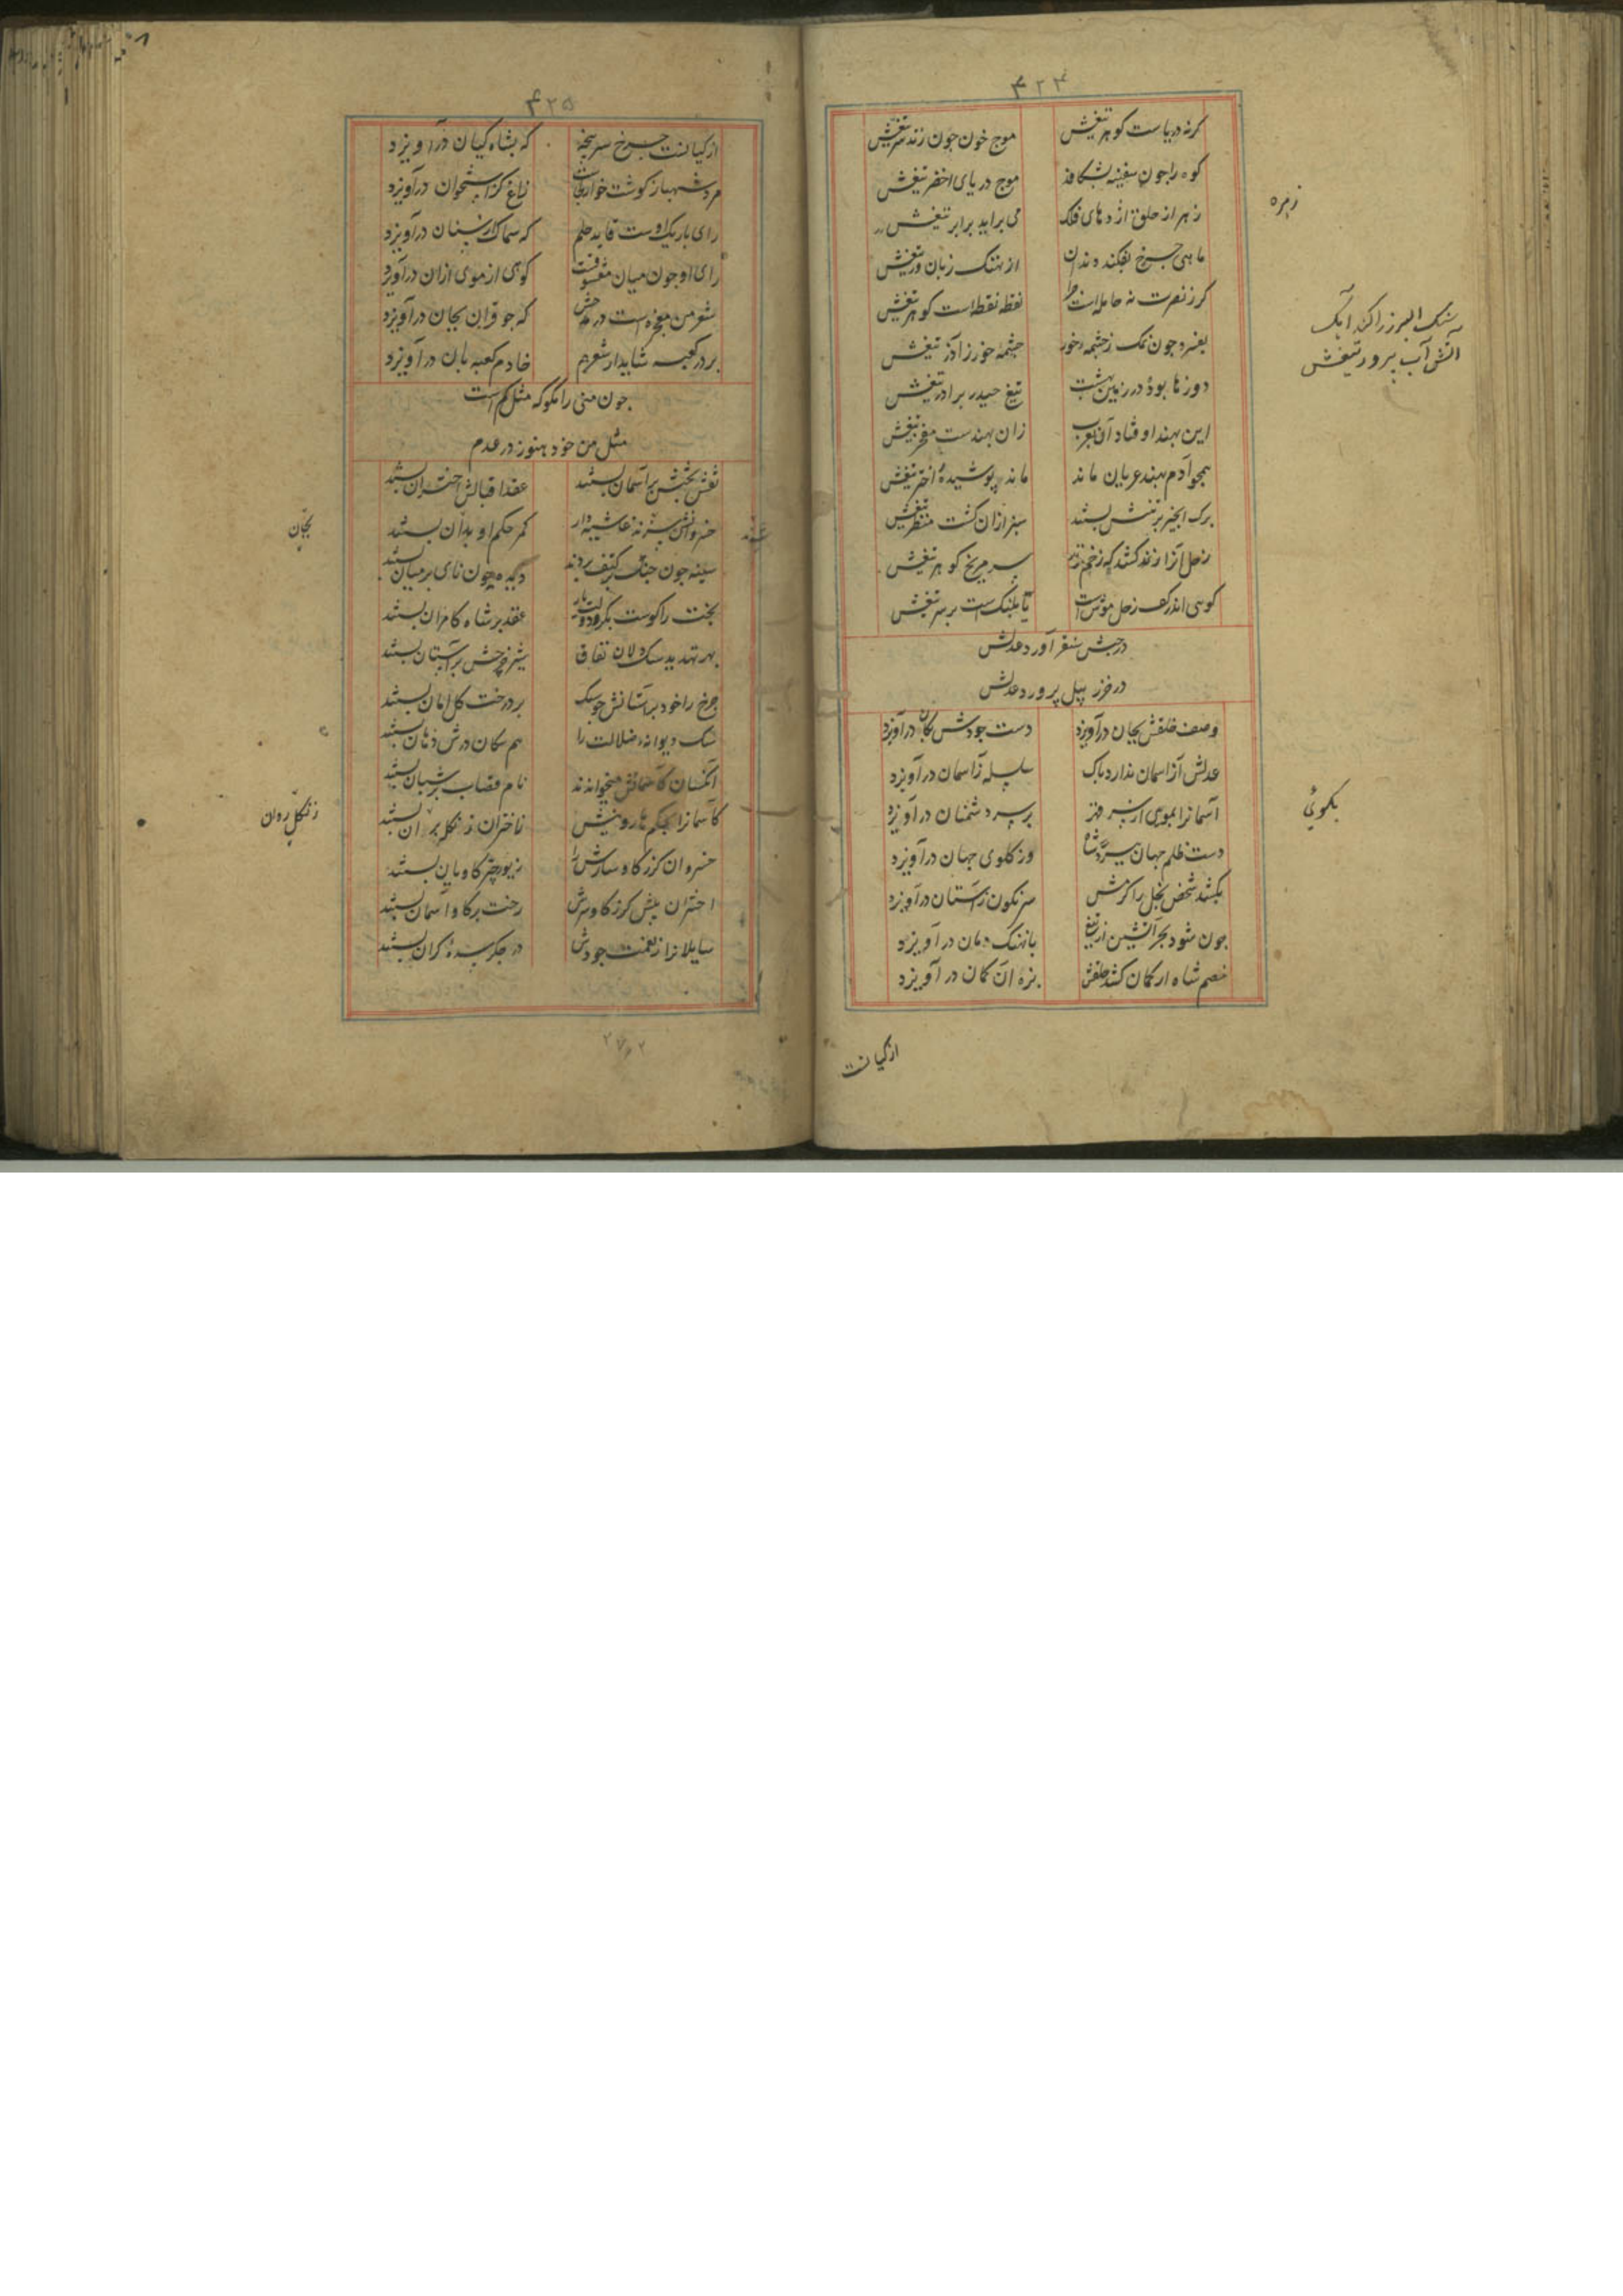 ۴۲۴
کرنه دریاست کوهر تیغش موج خون چون زند سر تیغش
کوه را چون سفینه بشکافد موج دریای اخضر تیغش
زهر از حلق اژدهای فلک می براید برابر تیغش
ماهی چرخ بفکند دندان از نهنک زبان ور تیغش
کر ز نصرت نه حامله است چرا نقطه نقطه است کوهر تیغش
بفسرد چون نمک ز چشمه خور چشمه خور ز آذر تیغش
دوزها بود در زمین بهشت تیغ حیدر برادر تیغش
این بهند اوفتاد آن بعرب زان بهندست مفخر تیغش
همچو آدم بهند عریان ماند ماند پوشیده اختر تیغش
برک انجیر بر تنش بستند سبز ازان کشت منظر تیغش
زحل آنرا زند کشد که زخم زند سر مریخ کوهر تیغش
کوسی اندر کف زحل موئس است تا پلنک است بر سر تیغش
در حبش سنقر آورد عدلش
در خزر پیل پرورد عدلش
وصف خلقش بجان درآویزد دست جودش بکان درآویزد
عدلش آزاسمان ندارد باک سلسله زاسمان درآویزد
آسمانرا بموی از سر قهر بر سر دشمنان درآویزد
دست ظلم جهان ببرد شاه وز کلوی جهان درآویزد
بکشد شخص بخل را کرمش سرنکون زآستان درآویزد
چون شود بحر آتشین از تیغ با نهنک دمان درآویزد
خصم شاه ار کمان کشد حلقش بزه آن کمان درآویزد
زهره
سنک البرز را کند آبک
آتش آب پرور تیغش
بکوئی
از کیانت
۴۲۵
از کیانت چرخ سرپنجه که بشاه کیان درآویزد
مرد شهباز کوشت خوار کجاست زاغ کز استخوان درآویزد
رای باریک اوست قاید حلم که سماک ارسنان درآویزد
رای او چون میان معشوقست کوهی از موی ازان درآویزد
شعر من معجزه است در مدحش که چو قران بجان درآویزد
بر در کعبه شاید ار شعرم خادم کعبه بان درآویزد
چون منی را مکو که مثل کم است
مثل من خود هنوز در عدم
نقش بختش بر آسمان بستند عقد اقبالش اختران بستند
خسروانش سزند غاشیه دار کمر حکم او بدان بستند
سینه چون چنک بر کتف بردند دیده چون نای بر میان بستند
بخت را کوست بکر دولت یار عقد بر شاه کامران بستند
بهر تهدید سک دلان نفاق شیر چرخش بر آستان بستند
چرخ را خود بر آستانش چو سک بر درخت کل امان بستند
سک دیوانه ضلالت را هم سکان درش دهان بستند
آنکسان کآسمانش میخوانند نام قصاب بر شبان بستند
کآسمانرا بحکم هارونیش زاختران زنکله بر آن بستند
خسروان کرز کاوسارش را زیور چتر کاویان بستند
اختران پیش کرز کاوسرش رخت بر کاو آسمان بستند
سایلانرا ز نعمت جودش در جکر سده کران بستند
بجان
زنکل روان